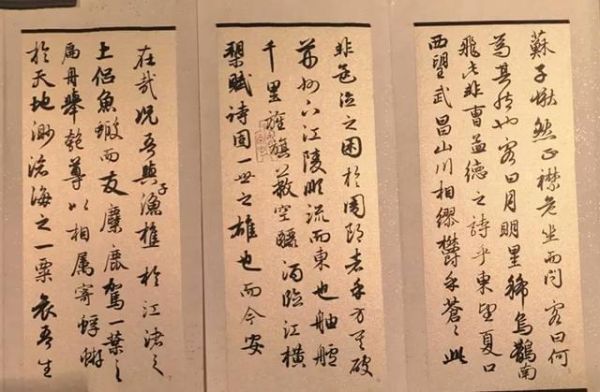 蘇子愀然正襟危坐而問客曰何
為其然也客曰月明星稀烏鵲南
飛此非曹孟德之詩乎東望夏口
西望武昌山川相繆鬱乎蒼々此
非孟德之困於周郎者乎方其破
荊州下江陵順流而東也舳艫
千里旌旗蔽空釃酒臨江橫
槊賦詩固一世之雄也而今安
在哉況吾與子漁樵於江渚之
上侶魚蝦而友麋鹿駕一葉之
扁舟舉匏尊以相屬寄蜉蝣
於天地渺滄海之一粟哀吾生